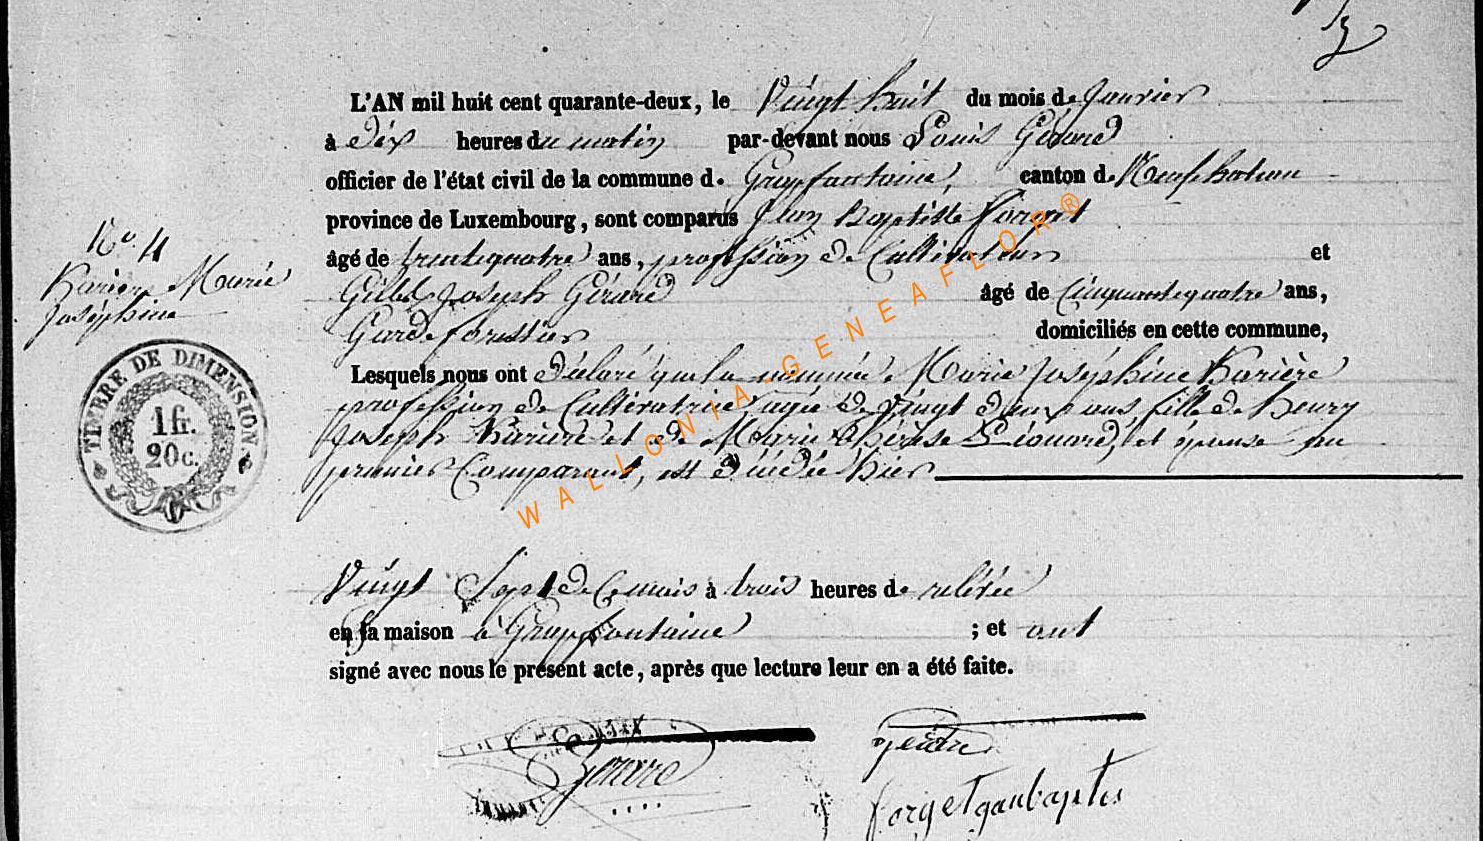 3
L'AN mil huit cent quarante-deux, le Vingt huit du mois de Janvier
à Dix heures du matin par-devant nous Louis Gérard
officier de l'état civil de la commune de Grapfontaine, canton de Neufchateau
province de Luxembourg, sont comparus Jean Baptiste Forget
âgé de trente quatre ans, profession de Cultivateur et
Joseph Gérard âgé de Cinquante quatre ans,
Garde forestier domiciliés en cette commune,
Lesquels nous ont Déclaré que la nommée Marie Joséphine Harière
profession de Cultivatrice agée de Vingt Deux ans, fille de Henry
Joseph Harière et de Marie Thérèse Léonard, et épouse du
premier Comparant, est Décédée hier
Vingt Sept de Ce mois à trois heures de relévée
en sa maison à Grapfontaine ; et ont
signé avec nous le présent acte, après que lecture leur en a été faite.
No. 4
Marie
Joséphine
TIMBRE DE DIMENSION
1 fr.
20 c.
Gérard
forget jean baptiste
WALLONIA.GENEAFLOR®